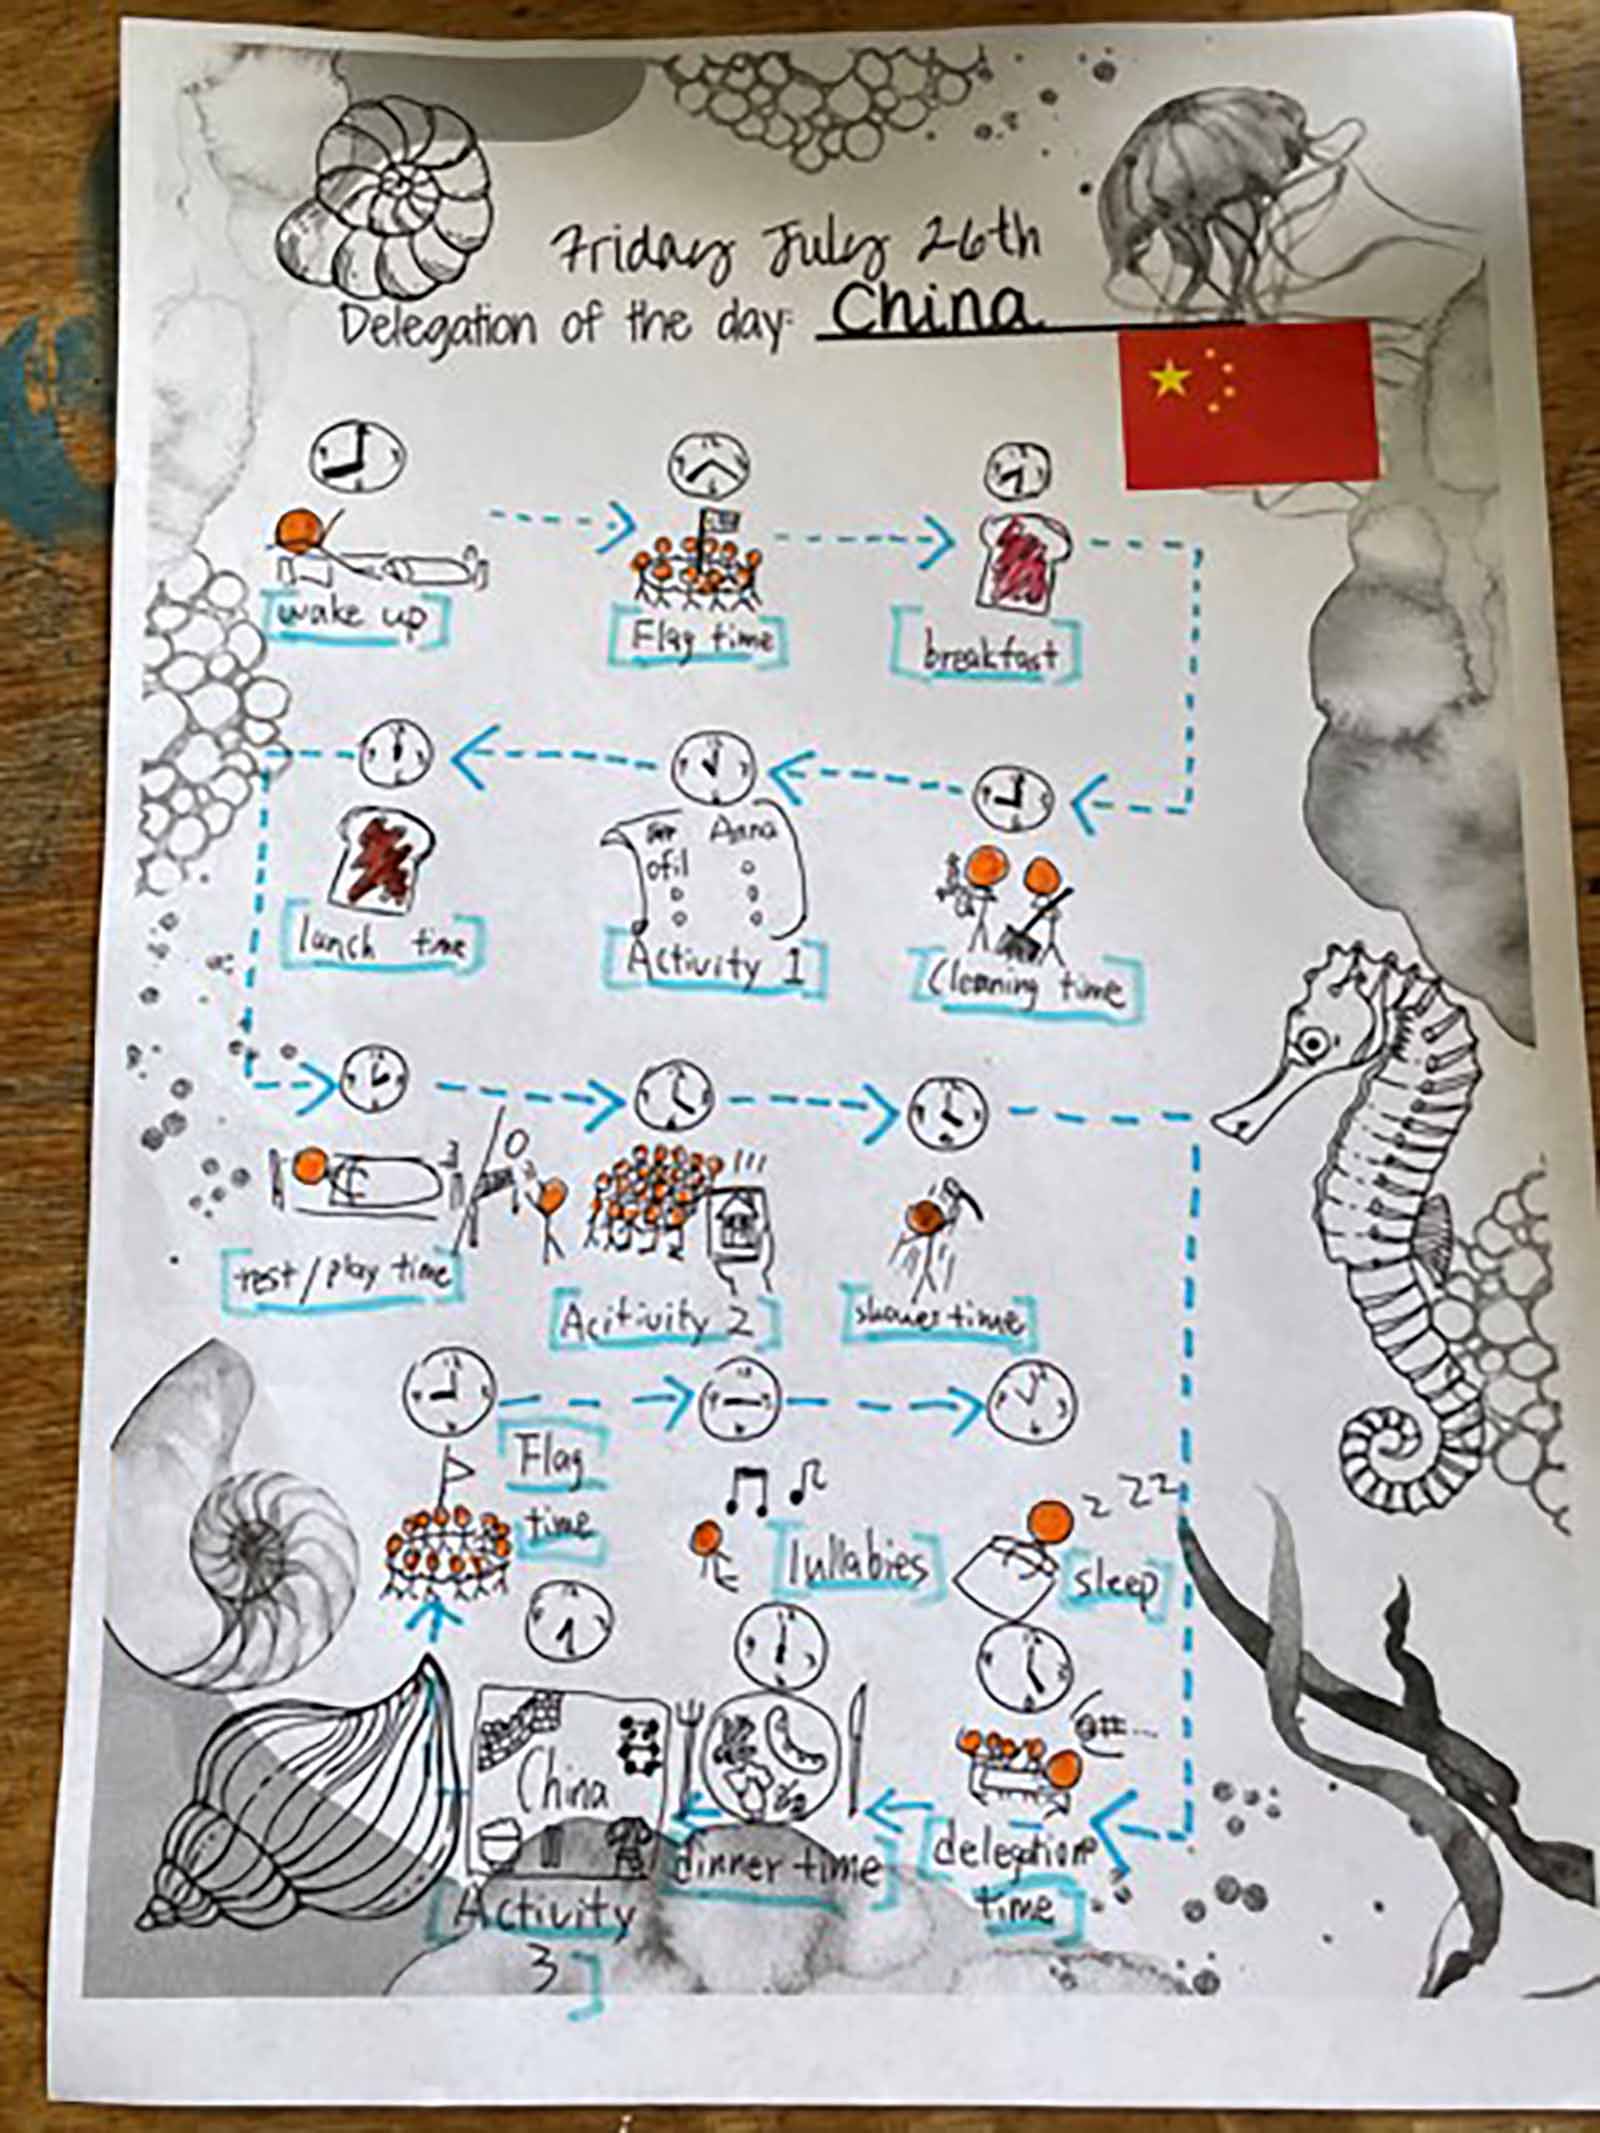 Friday July 26th
Delegation of the day: China
wake up
Flag time
breakfast
lunch time
Anna
ofil
Activity 1
Cleaning time
rest/play time
Acitivity 2
shower time
Flag
time
lullabies
z z z
sleep
China
Activity
3
dinner time
@#...
delegation
time